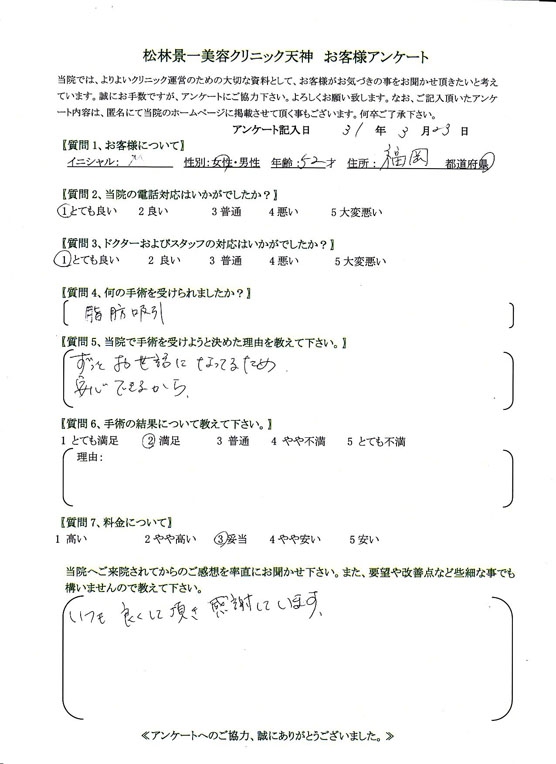 松林景一美容クリニック天神　お客様アンケート
当院では、よりよいクリニック運営のための大切な資料として、お客様がお気づきの事をお聞かせ頂きたいと考え
ています。誠にお手数ですが、アンケートにご協力下さい。よろしくお願い致します。なお、ご記入頂いたアンケ
ート内容は、匿名にて当院のホームページに掲載させて頂く事もございます。何卒ご了承下さい。
アンケート記入日　31　年　3　月　23　日
〖質問1、お客様について〗
イニシャル：　　　性別：女性・男性　年齢：52才　住所：　福岡　都道府県
〖質問2、当院の電話対応はいかがでしたか？〗
1とても良い　2良い　3普通　4悪い　5大変悪い
〖質問3、ドクターおよびスタッフの対応はいかがでしたか？〗
1とても良い　2 良い　3 普通　4悪い　5大変悪い
〖質問4、何の手術を受けられましたか？〗
脂肪吸引
〖質問5、当院で手術を受けようと決めた理由を教えて下さい。〗
ずっとお世話になってるため
安心できるから。
〖質問6、手術の結果について教えて下さい。〗
1 とても満足　2 満足　3 普通　4 やや不満　5 とても不満
理由：
〖質問7、料金について〗
1 高い　2やや高い　3妥当　4やや安い　5安い
当院へご来院されてからのご感想を率直にお聞かせ下さい。また、要望や改善点など些細な事でも
構いませんので教えて下さい。
いつも良くして頂き感謝しています。
≪アンケートへのご協力、誠にありがとうございました。≫